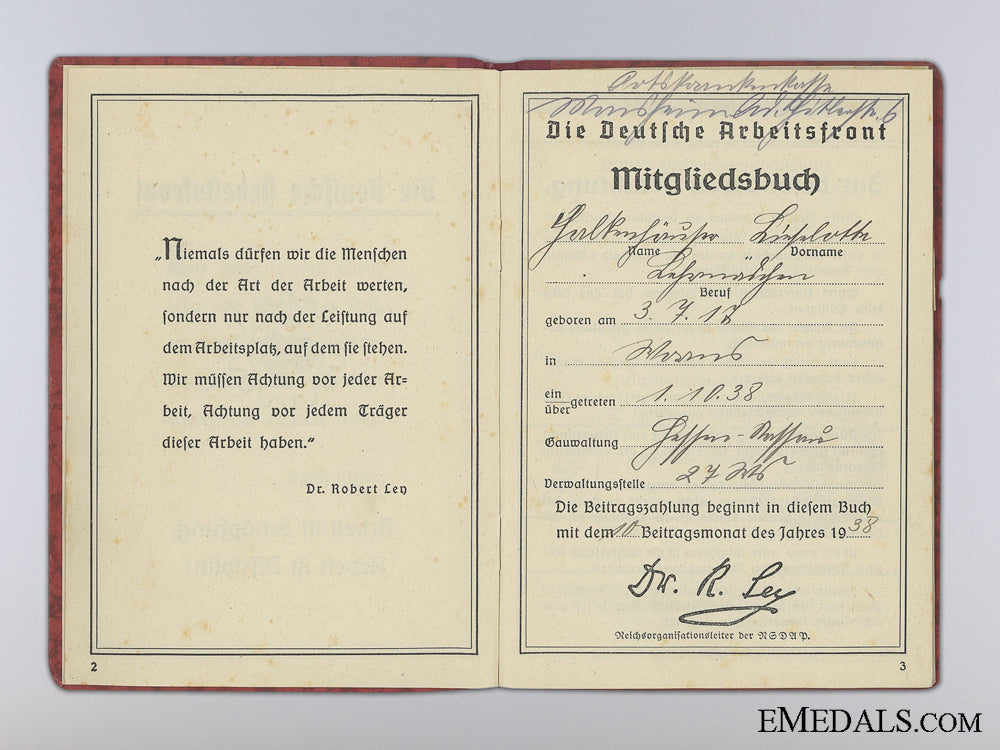 „Niemals dürfen wir die Menschen
nach der Art der Arbeit werten,
sondern nur nach der Leistung auf
dem Arbeitsplatz, auf dem sie stehen.
Wir müssen Achtung vor jeder Ar=
beit, Achtung vor jedem Träger
dieser Arbeit haben.“
Dr. Robert Ley
2
Ortskrankenkasse
Monsheim Ad. Hitlerstr. 6
Die Deutsche Arbeitsfront
Mitgliedsbuch
Falkenhäuser Lieselotte
Name Vorname
Lehrmädchen
Beruf
geboren am 3. 7. 17
in Worms
ein
über getreten 1. 10. 38
Gauwaltung Hessen-Nassau
Verwaltungsstelle 27
Die Beitragszahlung beginnt in diesem Buch
mit dem 10 Beitragsmonat des Jahres 1938
Dr. R. Ley
Reichsorganisationsleiter der NSDAP.
3
EMEDALS.COM